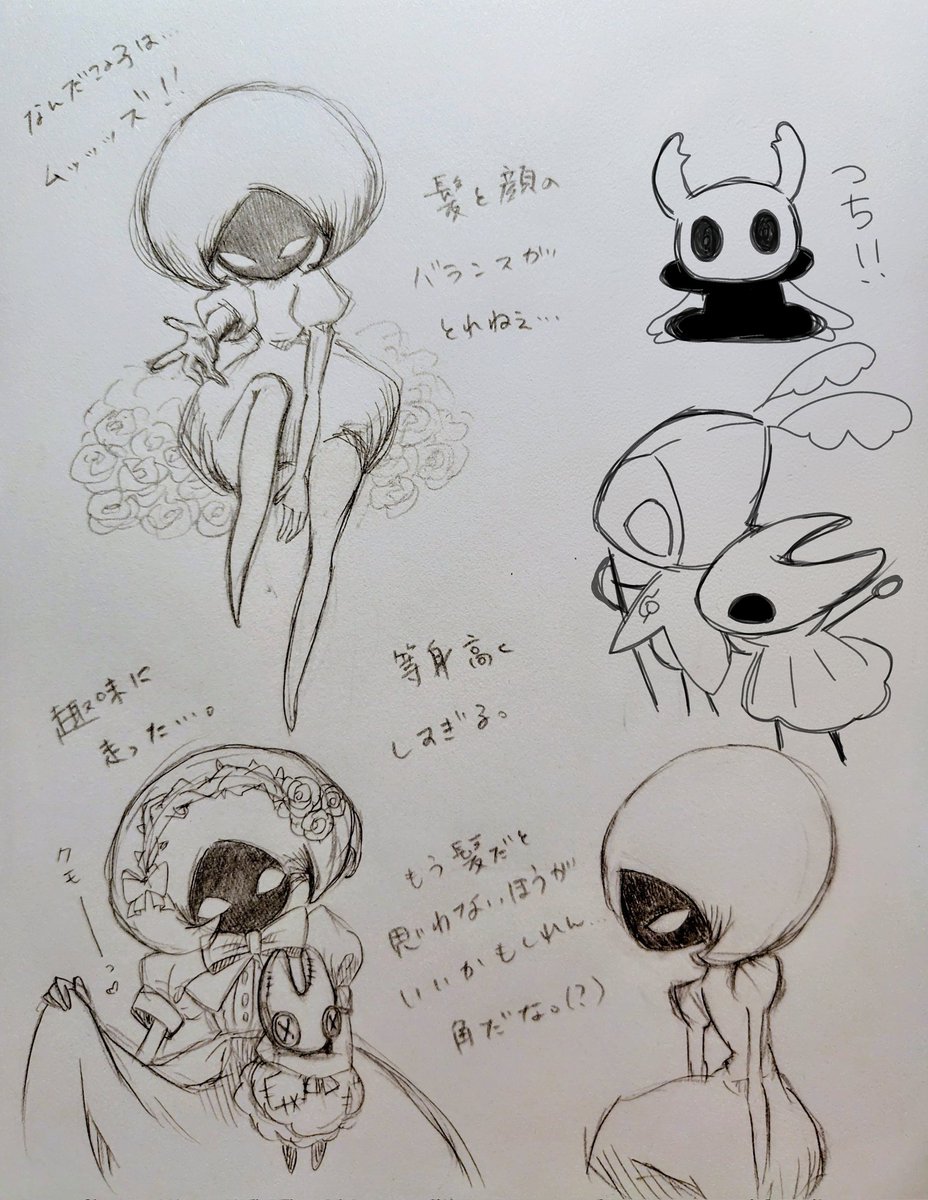 なんだこの子は…
ムッッッズ!!
髪と顔の
バランスが
とれねぇ…
つち!!
等身高く
しすぎる。
趣味に
走った…。
クモーーっ♡
もう髪だと
思わないほうが
いいかもしれん…
角だな。(?)